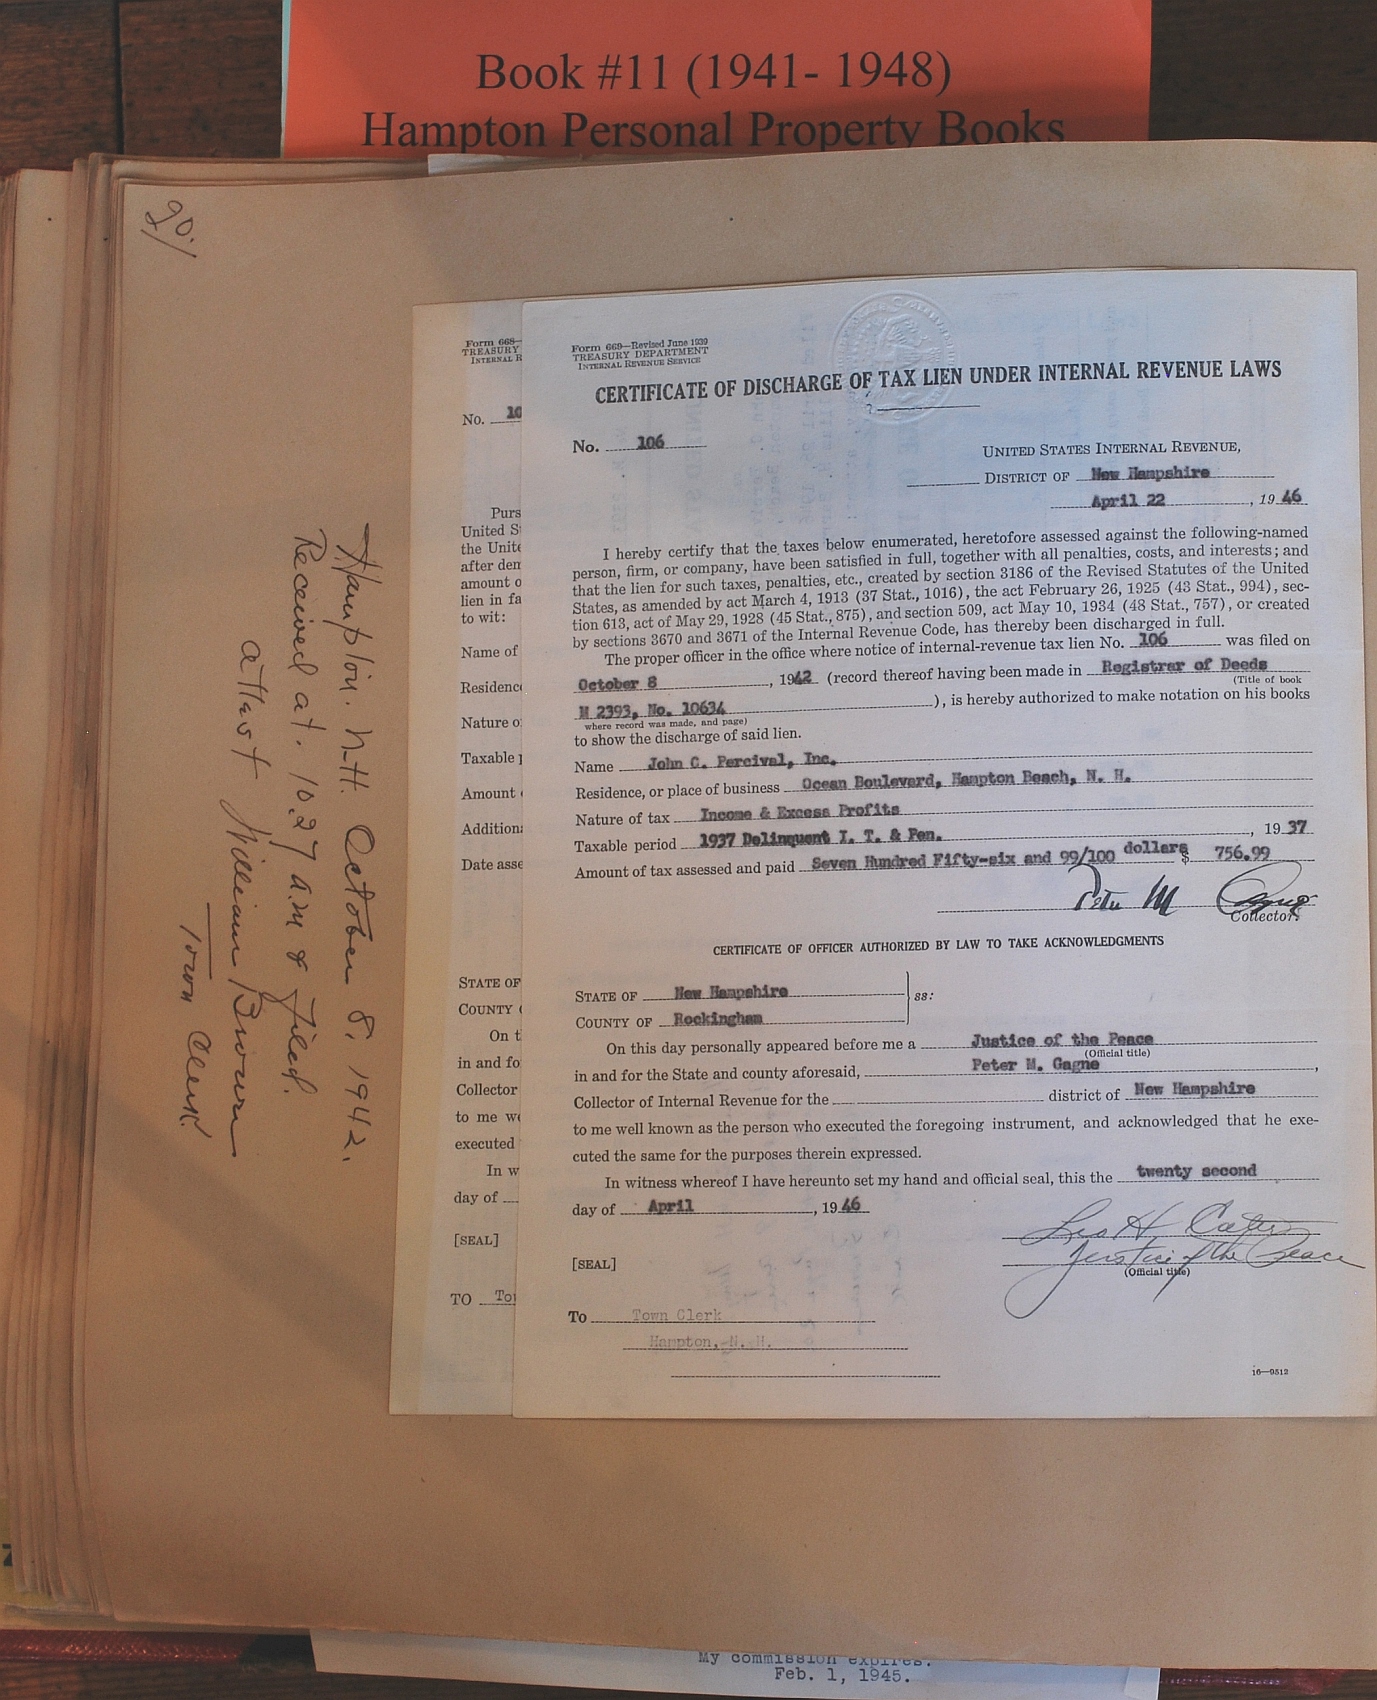 Book #11 (1941- 1948)
Hampton Personal Property Books
90./
Hampton. N.H. October 8, 1942.
Received at. 10.27 a.m & Filed.
attest William Brown
Town Clerk.
Form 668—
TREASURY
INTERNAL R
No. 10
Purs
United S
the Unite
after den
amount o
lien in fa
to wit:
Name of
Residence
Nature o
Taxable
Amount
Addition
Date asse
STATE OF
COUNTY
On t
in and fo
Collector
to me w
executed
In w
day of
[SEAL]
TO To
Form 669—Revised June 1939
TREASURY DEPARTMENT
INTERNAL REVENUE SERVICE
CERTIFICATE OF DISCHARGE OF TAX LIEN UNDER INTERNAL REVENUE LAWS
No. 106
UNITED STATES INTERNAL REVENUE,
DISTRICT OF New Hampshire
April 22, 1946
I hereby certify that the taxes below enumerated, heretofore assessed against the following-named
person, firm, or company, have been satisfied in full, together with all penalties, costs, and interests; and
that the lien for such taxes, penalties, etc., created by section 3186 of the Revised Statutes of the United
States, as amended by act March 4, 1913 (37 Stat., 1016), the act February 26, 1925 (43 Stat., 994), sec-
tion 613, act of May 29, 1928 (45 Stat., 875), and section 509, act May 10, 1934 (48 Stat., 757), or created
by sections 3670 and 3671 of the Internal Revenue Code, has thereby been discharged in full.
The proper officer in the office where notice of internal-revenue tax lien No. 106 was filed on
October 8, 1942 (record thereof having been made in Registrer of Deeds
(Title of book
M 2393, No. 10634), is hereby authorized to make notation on his books
where record was made, and page)
to show the discharge of said lien.
Name John C. Percival, Inc.
Residence, or place of business Ocean Boulevard, Hampton Beach, N. H.
Nature of tax Income & Excess Profits
Taxable period 1937 Delinquent I. T. & Pen., 1937
Amount of tax assessed and paid Seven Hundred Fifty-six and 99/100 dollars $ 756.99
Peter M Gagne
Collector.
CERTIFICATE OF OFFICER AUTHORIZED BY LAW TO TAKE ACKNOWLEDGMENTS
STATE OF New Hampshire
ss:
COUNTY OF Rockingham
On this day personally appeared before me a Justice of the Peace
(Official title)
in and for the State and county aforesaid, Peter M. Gagne,
Collector of Internal Revenue for the district of New Hampshire
to me well known as the person who executed the foregoing instrument, and acknowledged that he exe-
cuted the same for the purposes therein expressed.
In witness whereof I have hereunto set my hand and official seal, this the twenty second
day of April, 1946
Leo H Cater
Justice of the Peace
(Official title)
[SEAL]
To Town Clerk
Hampton, N. H.
16—9512
My commission expires.
Feb. 1, 1945.